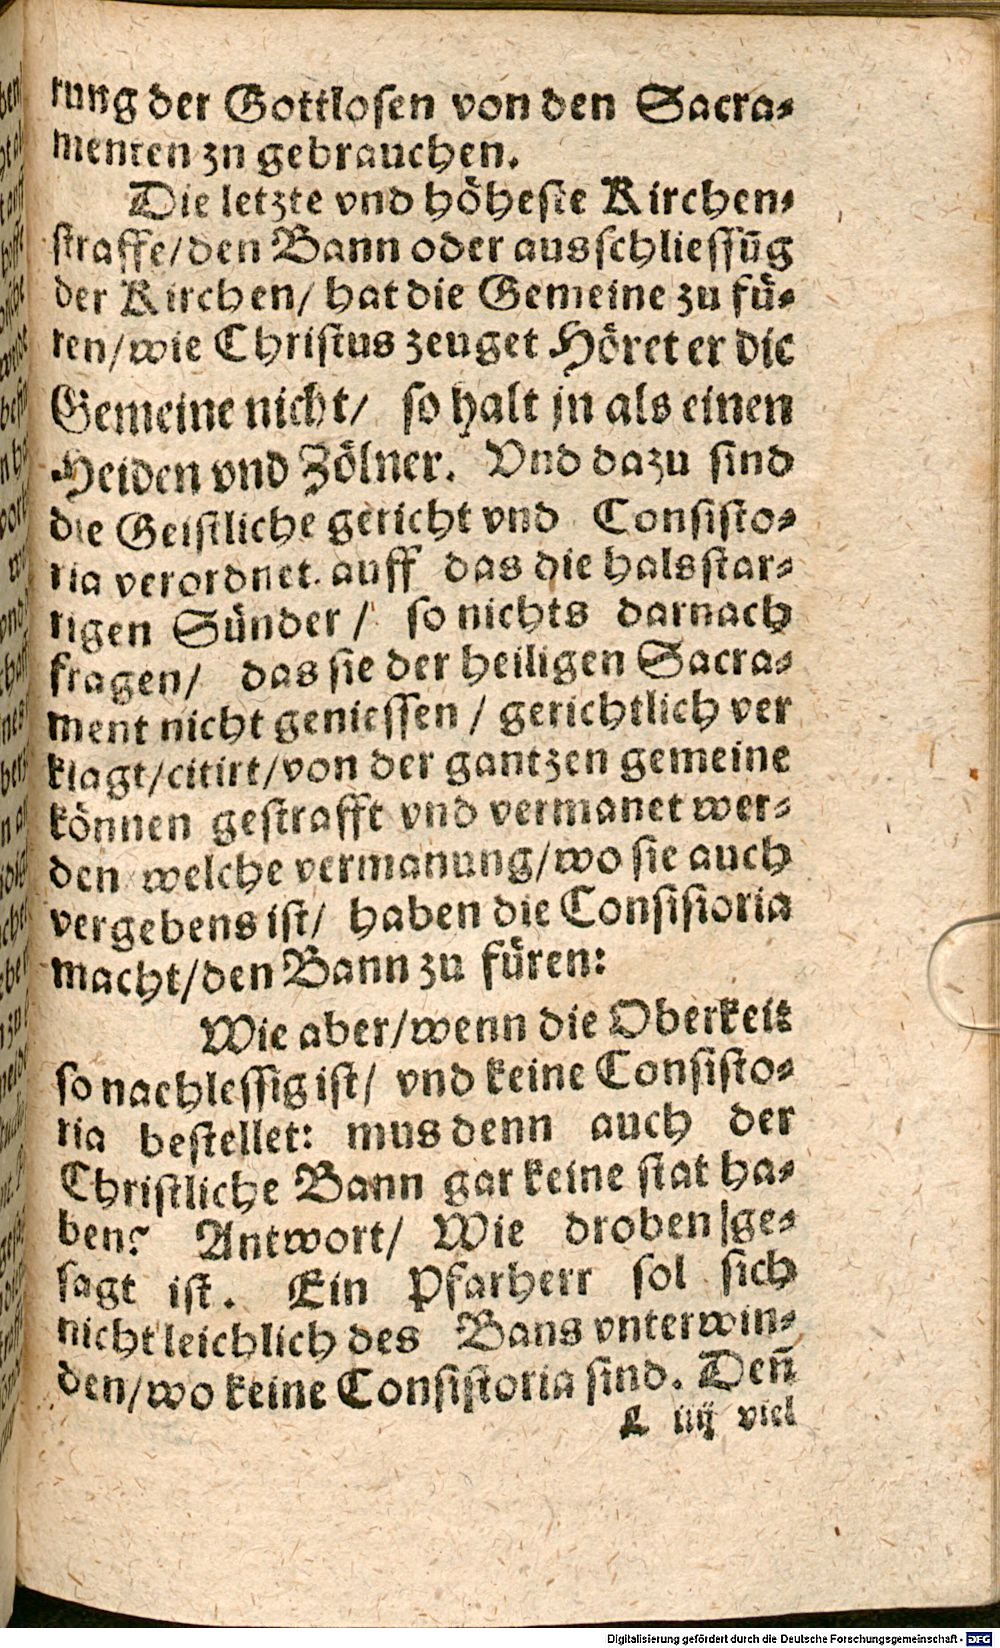 rung der Gottlosen von den Sacra-
menten zu gebrauchen.
Die letzte vnd höheste Kirchen-
straffe/den Bann oder ausschliessūg
der Kirchen/ hat die Gemeine zu fü-
ren/wie Christus zeuget Höret er die
Gemeine nicht/ so halt jn als einen
Heiden vnd Zölner. Vnd dazu sind
die Geistliche gericht vnd Consisto-
ria verordnet. auff das die halsstar-
rigen Sünder/ so nichts darnach
fragen/ das sie der heiligen Sacra-
ment nicht geniessen/ gerichtlich ver
klagt/citirt/von der gantzen gemeine
können gestrafft vnd vermanet wer-
den welche vermanung/wo sie auch
vergebens ist/ haben die Consistoria
macht/den Bann zu füren:
Wie aber/wenn die Oberkeit
so nachlessig ist/ vnd keine Consisto-
ria bestellet: mus denn auch der
Christliche Bann gar keine stat ha-
ben? Antwort/ Wie droben ge-
sagt ist. Ein Pfarherr sol sich
nicht leichlich des Bans vnterwin-
den/wo keine Consistoria sind. Deñ
L iiij viel
Digitalisierung gefördert durch die Deutsche Forschungsgemeinschaft - DFG